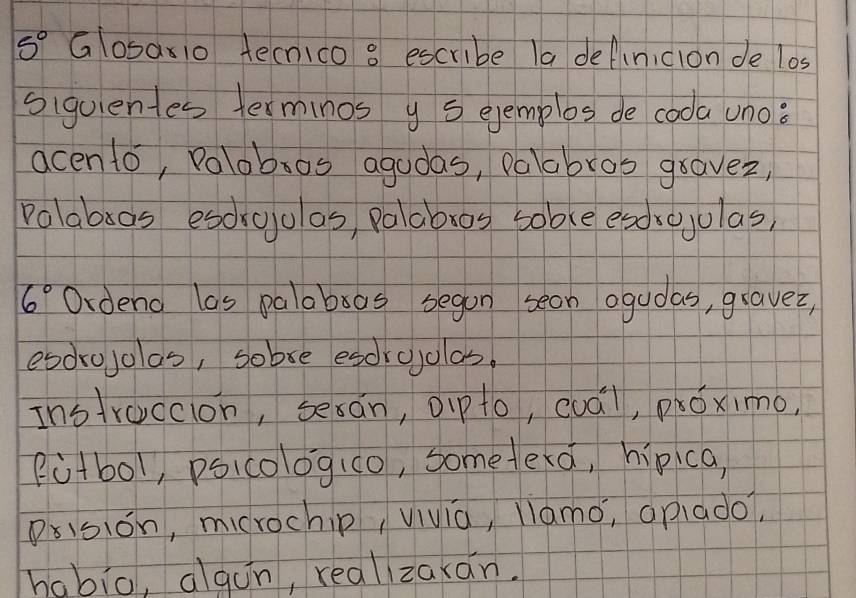 5° Glosario tecnico : escribe la definicion de los
siguientes terminos y 5 ejemplos de cada uno:
acentó, Palabras agudas, palabras gravez,
Palabras esdrújulas, palabras sobre esdrújulas,
6° Ordena las palabras segun sean agudas, gravez,
esdrújolas, sobre esdrújulas.
Instrucción, serán, Dipto, cuál, próximo,
Fútbol, psicológico, someterá, hípica,
prisión, microchip, vivía, llamó, apiadó,
había, algún, realizarán.